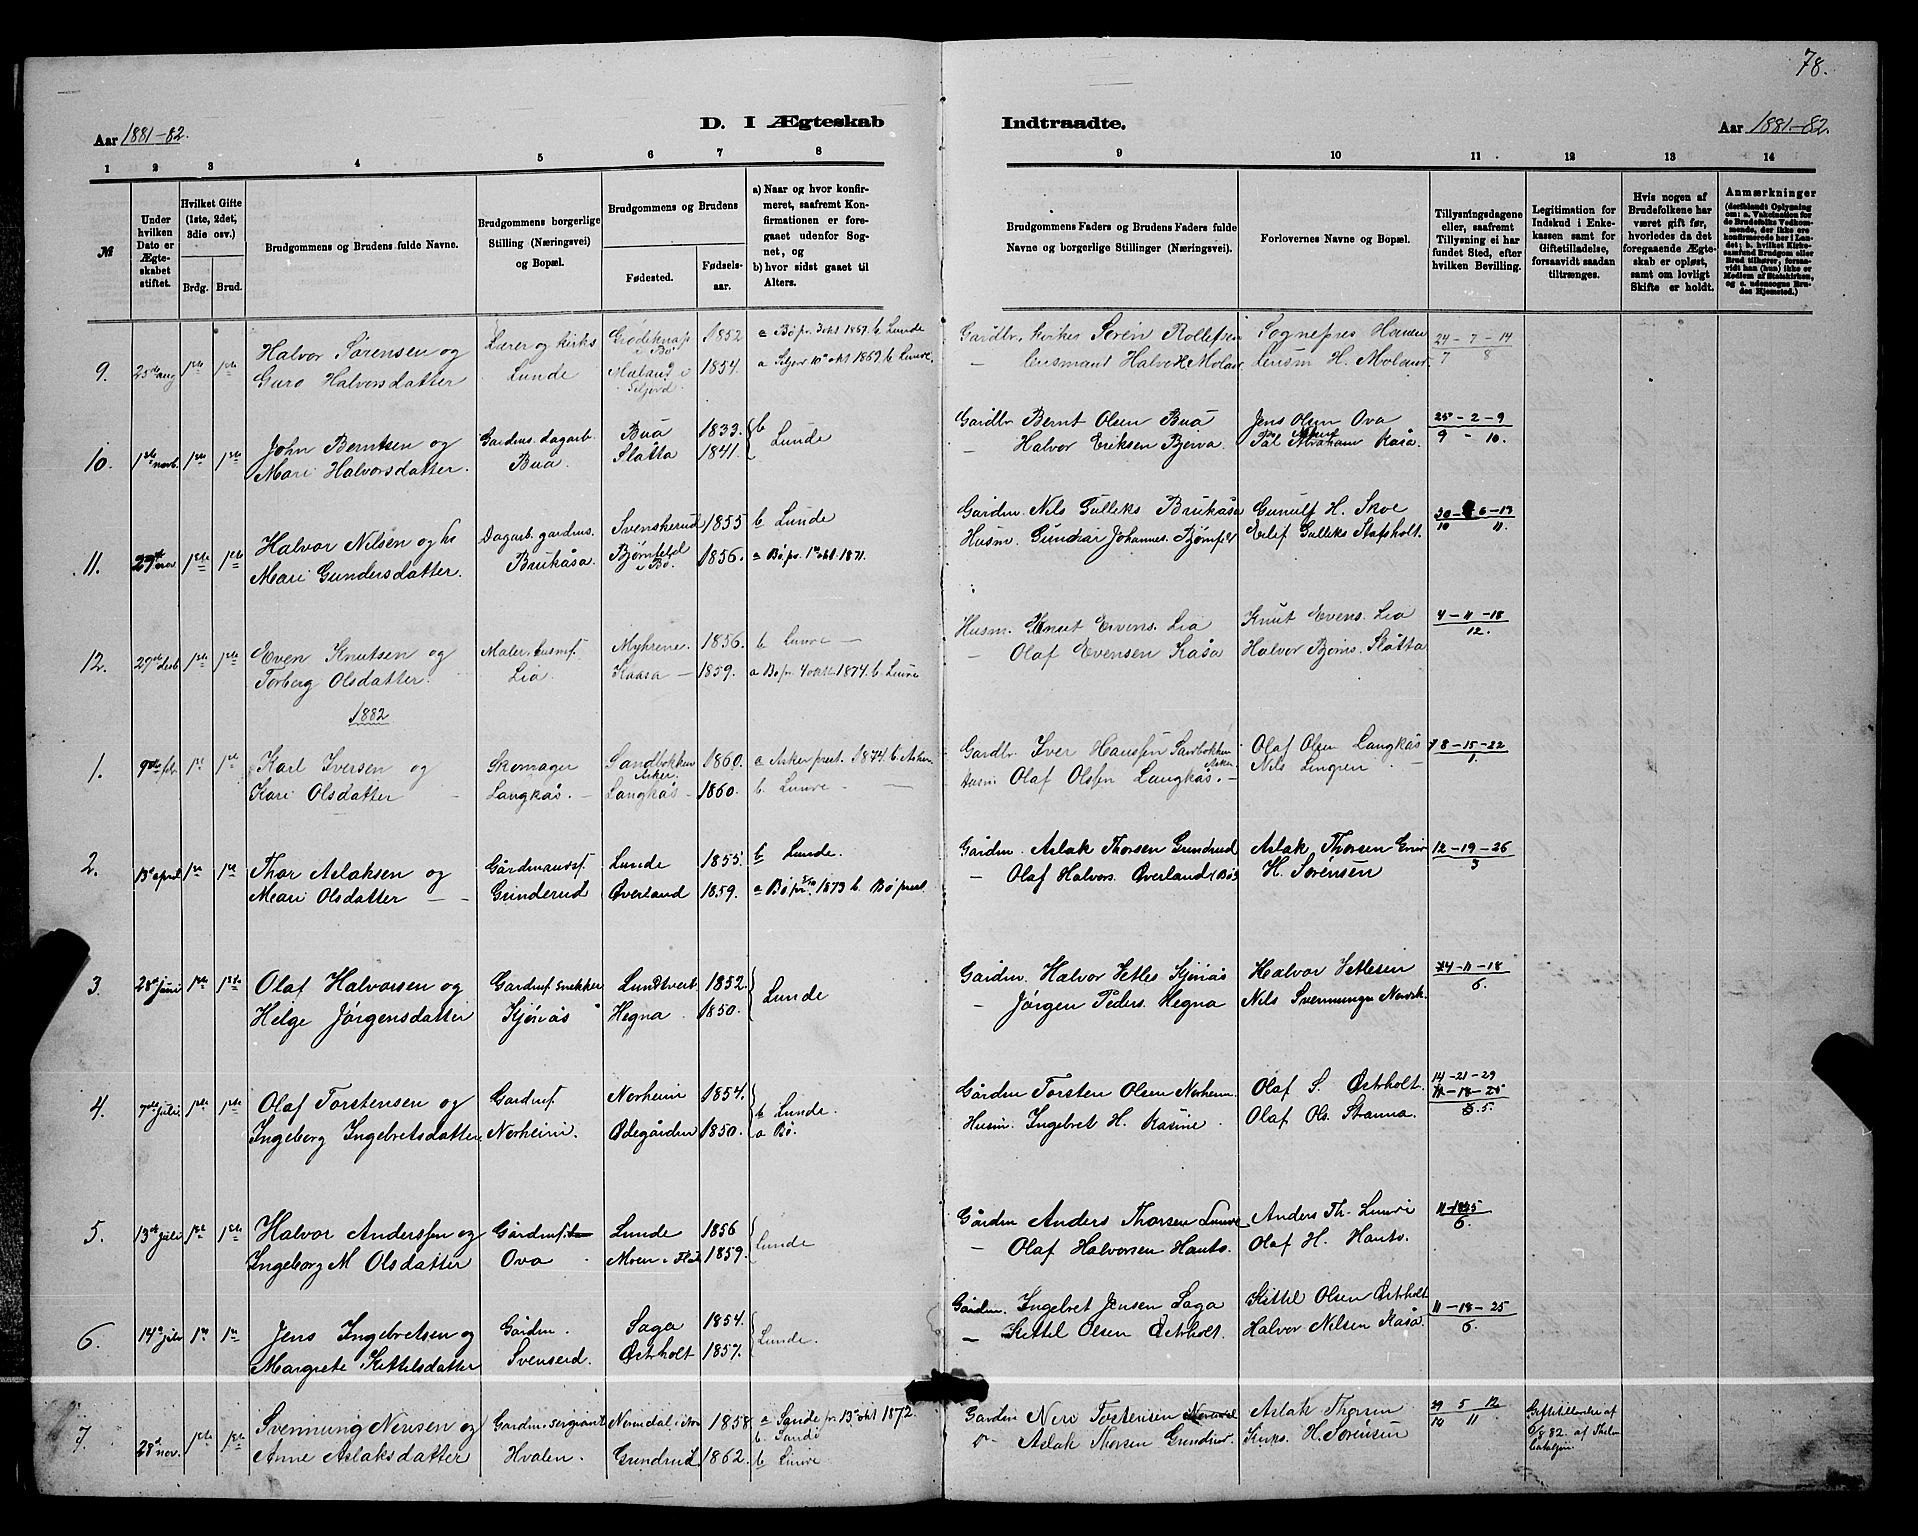 78.
Aar 1881-82.
D. I Ægteskab
Indtraadte.
Aar 1881-82.
1 2 3 4 5 6 7 8 9 10 11 12 13 14
№
Under hvilken Dato er Ægteskabet stiftet.
Hvilket Gifte (1ste, 2det, 3die osv.)
Brdg. Brud.
Brudgommens og Brudens fulde Navne.
Brudgommens borgerlige Stilling (Næringsvei) og Bopæl.
Brudgommens og Brudens
Fødested.
Fødselsaar.
a) Naar og hvor konfirmeret, saafremt Konfirmationen er foregaaet udenfor Sognet, og
b) hvor sidst gaaet til Alters.
Brudgommens Faders og Brudens Faders fulde Navne og borgerlige Stillinger (Næringsvei).
Forlovernes Navne og Bopæl.
Tillysningsdagene eller, saafremt Tillysning ei har fundet Sted, efter hvilken Bevilling.
Legitimation for Indskud i Enkekassen samt for Giftetilladelse, forsaavidt saadan tiltrænges.
Hvis nogen af Brudefolkene har været gift før, hvorledes da det foregaaende Ægteskab er opløst, samt om lovligt Skifte er holdt.
Anmærkninger (deriblandt Oplysning om: a. Vakcination for de Brudefolks Vedkommende, der ikke ere konfirmerede her i Landet; b. hvilket Kirkesamfund Brudgom eller Brud tilhører, forsaavidt han (hun) ikke er Medlem af Statskirken, og c. udensogns Brudes Hjemsted.)
9. 25de aug 1ste 1ste Halvor Sørensen og Lærer og kirks 1852 a Bø pr. 3 okt 1867 b Lunde Gardbr. kirker Søren Rollefsen Sognepres Hansen 24-7-14
Guro Halvorsdatter Lunde Moland i Seljord 1854. a Seljor 10 okt 1869 b Lunde. - lensmand Halvor Molan lensm H. Molan 7 8
10. 1ste novb. 1ste 1ste John Berntsen og Gardens. dagarb. Bua 1833. b Lunde Gardbr Bernt Olsen Bua Jens Olsen Ova 25-2-9
Mari Halvorsdatter. Bua. Slåtta 1841. - Halvor Eriksen Bjerva Pål Abraham Kåsa. 9 - 10.
11. 27de nov 1ste 1ste Halvor Nilsen og Dagarb. gardens. Svenskerud 1855 b Lunde Gårdm. Nils Gulleks Brukåsa Gunulf H. Skoe 30-6-13
Mari Gundersdatter. Brukåsa. Bjørntfjel i Bø. 1856. a Bø pr. 1 okt 1871. Husm. Gundar Johannes. Bjørnfjel Erlif Gulleks Stafsholt. 10 11.
12. 27de desb 1ste 1ste Even Knutsen og Maler, husmf. Myhrene. 1856. b Lunde - Husm. Knut Evens. Lia Knut Evens. Lia 4-11-18
Torberg Olsdatter. Lia. Kaasa - 1859. a Bø pr. 4 okt 1874. b Lunde - Olaf Evensen Kåsa Halvor Bjørns. Slåtta 12.
1882
1. 9de febr. 1ste 1ste Karl Iversen og Skomager Sandbokken Asker. 1860. a Asker prest. 1874 b. Asker Gardbr. Iver Hansen Sandbokken Asker Olaf Olsen Langkås 8-15-22
Kari Olsdatter - Langkås. - Langkås - 1860. b Lunde - Husm Olaf Olsen Langkås. - Nils Lingren - 1.
2. 13de april 1ste 1ste Thor Aslaksen og Gårdmandsf. Lunde 1855 b Lunde. Gårdm Aslak Thorsen Grundrud Aslak Thorsen 12-19-26
Mari Olsdatter - - Grinderud Øverland 1859. a Bø pr. 1873 b. Bø prest. - Olaf Halvors. Øverland Bø H. Sørensen 3
3. 28de juni 1ste 1ste Olaf Halvorsen og Gardmf snekker Lundtvet 1852 Lunde Gårdm. Halvor Vetles Kjeriås Halvor Vetlesen 4-11-18
Helge Jørgensdatter Kjeriås Hegna. 1850. - Jørgen Peders. Hegna Nils Svenninge Nordsk. 6.
4. 7de juli. 1ste 1ste Olaf Torstensen og Gardmf. Norheim 1854. b Lunde. Gårdm Torsten Olsen Norheim. Olaf S. Østrholt. 14-21-29
11-18-25
Ingeborg Ingebretsdatter. Norheim. Ødegården 1850. a Bø. Husm. Ingebret H. Kasine. Olaf Ols. Stranna. 5.
5. 13de juli 1ste 1ste Halvor Anderssen og Gårdmf. Lunde 1856 Lunde Gårdm Anders Thorsen Lunde Anders Th. Lunde 11-18-25
Ingeborg M Olsdatter Ova 1859. - Olaf Halvorsen Hauts. Olaf H. Hauts. 6.
6. 14de juli 1ste 1ste Jens Ingebretsen og Gårdm. Saga 1854. Lunde. Gårdm. Ingebret Jensen Saga Kittil Olsen Østrholt 11-18-25
Margrete Kittelsdatter Svenserd. Østrholt 1857. - Kittil Olsen Østrholt. Halvor Nilsen Kåsa 6.
7. 28de nov. 1ste 1ste Svennung Nersen og Gardm. sergeant 1858. a Sande pr. 13 okt 1872. b. Sande Gårdm Neri Tostensen Aslak Thorsen 29 5 12 Giftetilladelse af
Anne Aslaksdatter Hvalen. Grundrud 1862. b Lunde Aslak Thorsen Grundrud. Kirks. H. Sørensen 10 11